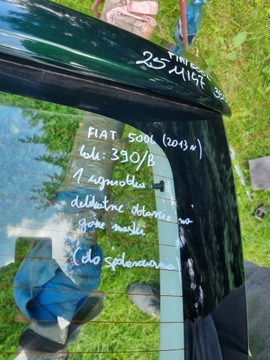 25 MIG7
FIAT 500L (2013 r)
lak: 390/B
1 wgniotka
delikatne otarcie na
górze maski
(do spolerowania)